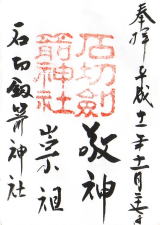 奉拝 平成十一年十一月三十日
石切劔
箭神社
敬神
崇祖
石切劔箭神社